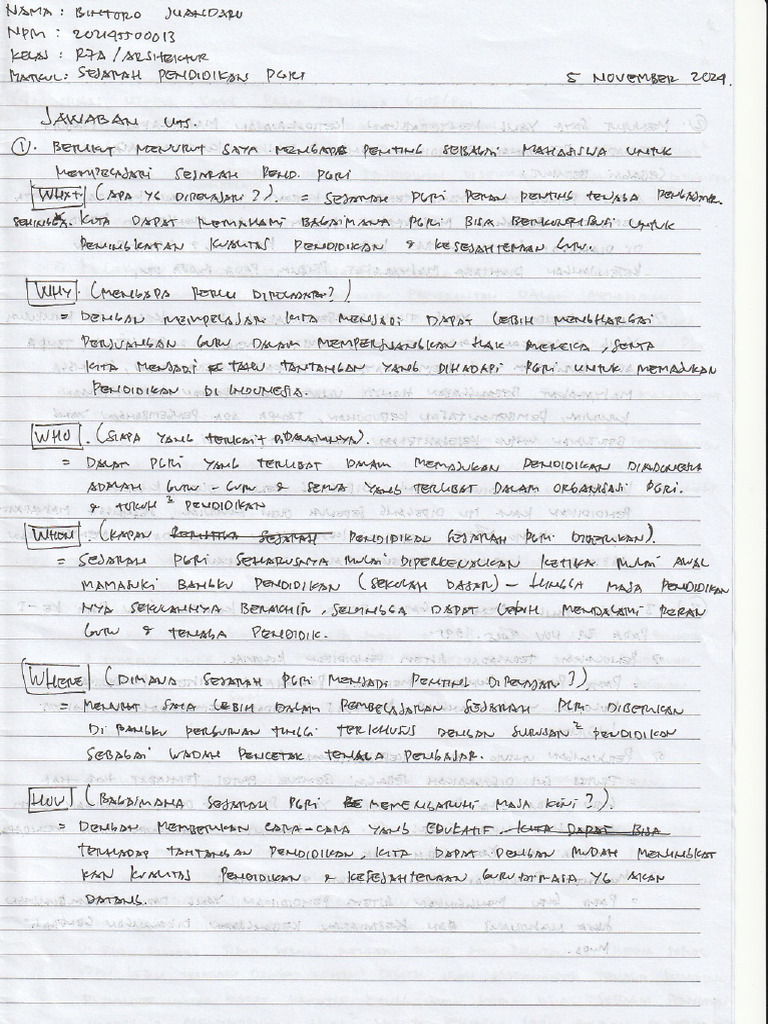 NAMA : BINTORO JUANDARU
NPM : 202145500013
KELAS : R7A / ARSITEKTUR
MATKUL : SEJARAH PENDIDIKAN PGRI 5 NOVEMBER 2024.
JAWABAN UTS.
①. BERIKUT MENURUT SAYA MENGAPA PENTING SEBAGAI MAHASISWA UNTUK
MEMPELAJARI SEJARAH PEND. PGRI
WHAT (APA YG DIPELAJARI?). = SEJARAH PGRI PERAN PENTING TENAGA PENGAJAR.
SEHINGGA. KITA DAPAT MEMAHAMI BAGAIMANA PGRI BISA BERKONTRIBUSI UNTUK
PENINGKATAN KUALITAS PENDIDIKAN & KESEJAHTERAAN GURU.
WHY. (MENGAPA PERLU DIPELAJARI?)
= DENGAN MEMPELAJARI KITA MENJADI DAPAT LEBIH MENGHARGAI
PERJUANGAN GURU DALAM MEMPERJUANGKAN HAK MEREKA, SERTA
KITA MENJADI TAHU TANTANGAN YANG DIHADAPI PGRI UNTUK MEMAJUKAN
PENDIDIKAN DI INDONESIA.
WHO. (SIAPA YANG TERKAIT DIDALAMNYA).
= DALAM PGRI YANG TERLIBAT DALAM MEMAJUKAN PENDIDIKAN DIINDONESIA
ADALAH GURU - GURU & SEMUA YANG TERLIBAT DALAM ORGANISASI PGRI.
& TOKOH² PENDIDIKAN
WHEN. (KAPAN SEJARAH PENDIDIKAN SEJARAH PGRI DIBERIKAN).
= SEJARAH PGRI SEHARUSNYA MULAI DIPERKENALKAN KETIKA MULAI AWAL
MAMASUKI BANGKU PENDIDIKAN (SEKOLAH DASAR) - HINGGA MASA PENDIDIKAN
NYA SEKOLAHNYA BERAKHIR, SEHINGGA DAPAT LEBIH MENDALAMI PERAN
GURU & TENAGA PENDIDIK.
WHERE (DIMANA SEJARAH PGRI MENJADI PENTING DIPELAJARI?)
= MENURUT SAYA LEBIH DALAM PEMBELAJARAN SEJARAH PGRI DIBERIKAN
DI BANGKU PERGURUAN TINGGI TERKHUSUS DENGAN JURUSAN² PENDIDIKAN
SEBAGAI WADAH PENCETAK TENAGA PENGAJAR.
HOW (BAGAIMANA SEJARAH PGRI MEMENGARUHI MASA KINI?).
= DENGAN MEMBERIKAN CARA-CARA YANG EDUKATIF. KITA DAPAT BISA
TERHADAP TANTANGAN PENDIDIKAN, KITA DAPAT DENGAN MUDAH MENINGKAT
KAN KUALITAS PENDIDIKAN & KESEJAHTERAAN GURU DIMASA YG AKAN
DATANG.